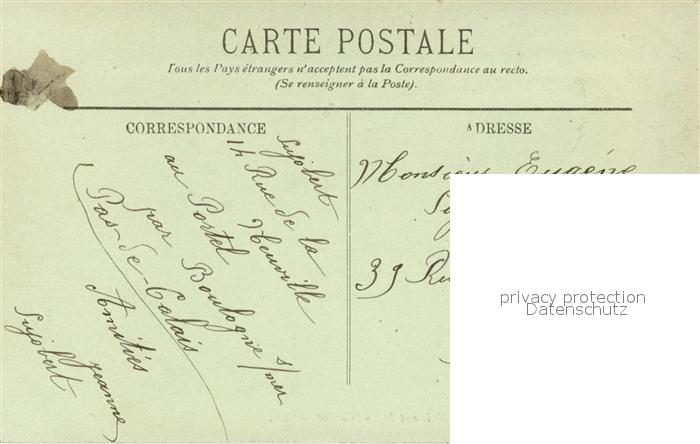 CARTE POSTALE
Tous les Pays étrangers n'acceptent pas la Correspondance au recto.
(Se renseigner à la Poste).
CORRESPONDANCE
Sujobert
14 Rue de la
Neuville
au Portel
par Boulogne s/mer
Pas-de-Calais
Amitiés
Jeanne
Sujobert
ADRESSE
Monsieur Eugène
39 Ru
privacy protection
Datenschutz